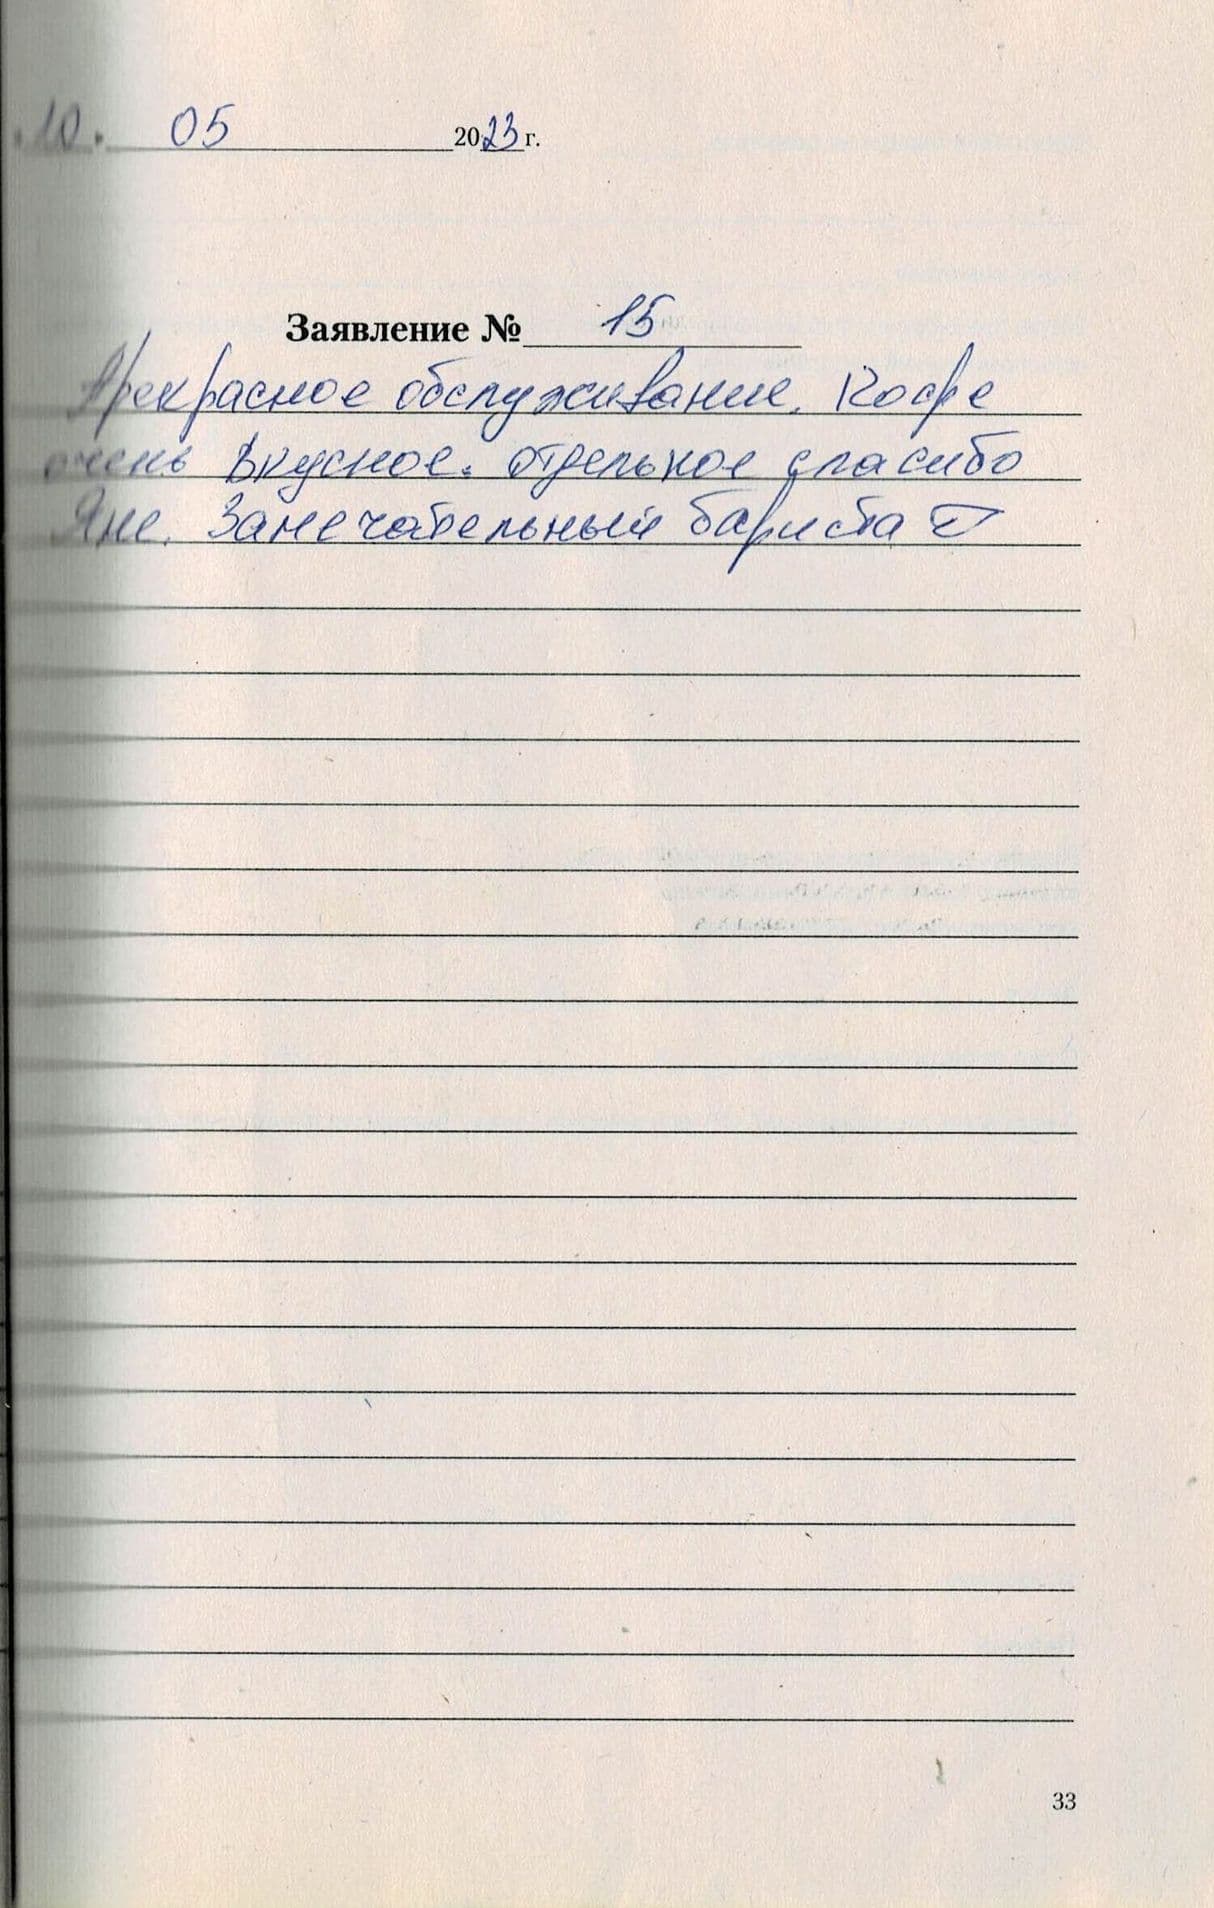 10. 05 2023 г.
Заявление № 15
Прекрасное обслуживание. Кофе
очень вкусное. отдельное спасибо
Яне. Замечательный бариста
33